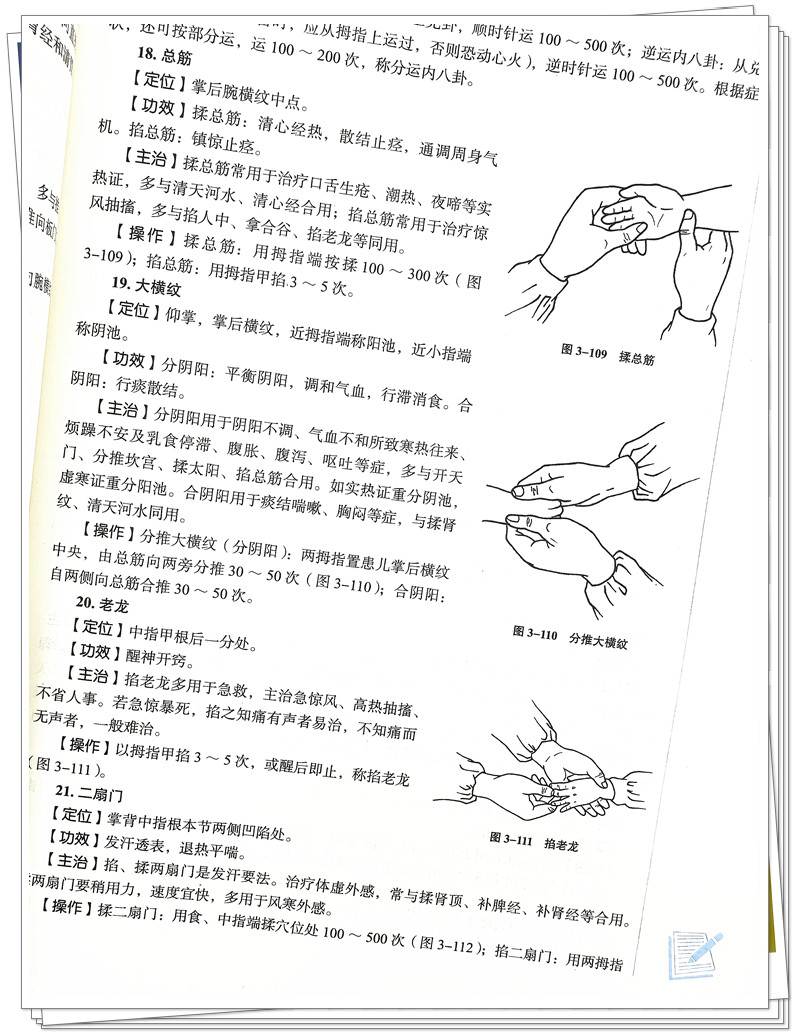 状，还可按部分运，运100～200次，称分运内八卦。
，应从拇指上运过，否则恐动心火），逆时针运100～500次。根据症
卦，顺时针运100～500次；逆运内八卦：从兑
18. 总筋
【定位】掌后腕横纹中点。
【功效】揉总筋：清心经热，散结止痉，通调周身气
机。掐总筋：镇惊止痉。
【主治】揉总筋常用于治疗口舌生疮、潮热、夜啼等实
热证，多与清天河水、清心经合用；掐总筋常用于治疗惊
风抽搐，多与掐人中、拿合谷、掐老龙等同用。
【操作】揉总筋：用拇指端按揉100～300次（图
3-109）；掐总筋：用拇指甲掐3～5次。
图3-109 揉总筋
19. 大横纹
【定位】仰掌，掌后横纹，近拇指端称阳池，近小指端
称阴池。
【功效】分阴阳：平衡阴阳，调和气血，行滞消食。合
阴阳：行痰散结。
【主治】分阴阳用于阴阳不调、气血不和所致寒热往来、
烦躁不安及乳食停滞、腹胀、腹泻、呕吐等症，多与开天
门、分推坎宫、揉太阳、掐总筋合用。如实热证重分阴池，
虚寒证重分阳池。合阴阳用于痰结喘嗽、胸闷等症，与揉肾
纹、清天河水同用。
【操作】分推大横纹（分阴阳）：两拇指置患儿掌后横纹
中央，由总筋向两旁分推30～50次（图3-110）；合阴阳：
自两侧向总筋合推30～50次。
图3-110 分推大横纹
20. 老龙
【定位】中指甲根后一分处。
【功效】醒神开窍。
【主治】掐老龙多用于急救，主治急惊风、高热抽搐、
不省人事。若急惊暴死，掐之知痛有声者易治，不知痛而
无声者，一般难治。
【操作】以拇指甲掐3～5次，或醒后即止，称掐老龙
（图3-111）。
图3-111 掐老龙
21. 二扇门
【定位】掌背中指根本节两侧凹陷处。
【功效】发汗透表，退热平喘。
【主治】掐、揉两扇门是发汗要法。治疗体虚外感，常与揉肾顶、补脾经、补肾经等合用。
两扇门要稍用力，速度宜快，多用于风寒外感。
【操作】揉二扇门：用食、中指端揉穴位处100～500次（图3-112）；掐二扇门：用两拇指